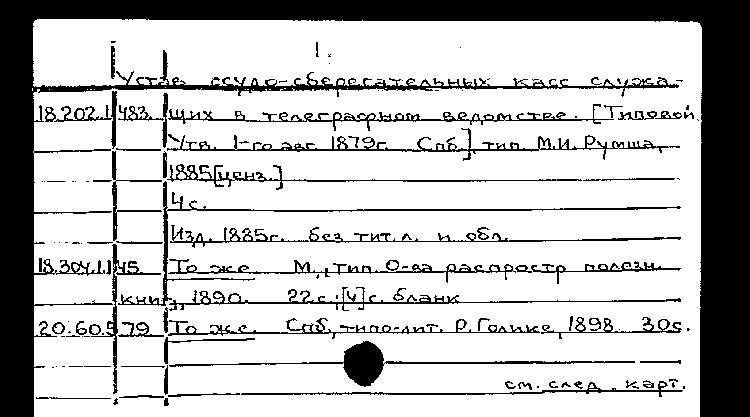 1.
Устав ссудо-сберегательных касс служа-
18.202.1.483. щих в телеграфном ведомстве. [Типовой
Утв. 1-го авг. 1879г. Спб.], тип. М.И. Румша,
1885[ценз.]
4 с.
Изд. 1885г. без тит. л. и обл.
18.304.1.145. То же. М., тип. О-ва распростр полезн.
книг, 1890. 22 с.; [4] с. бланк
20.60.5.79 То же. Спб, типо-лит. Р. Голике, 1898 30с.
см. след. карт.